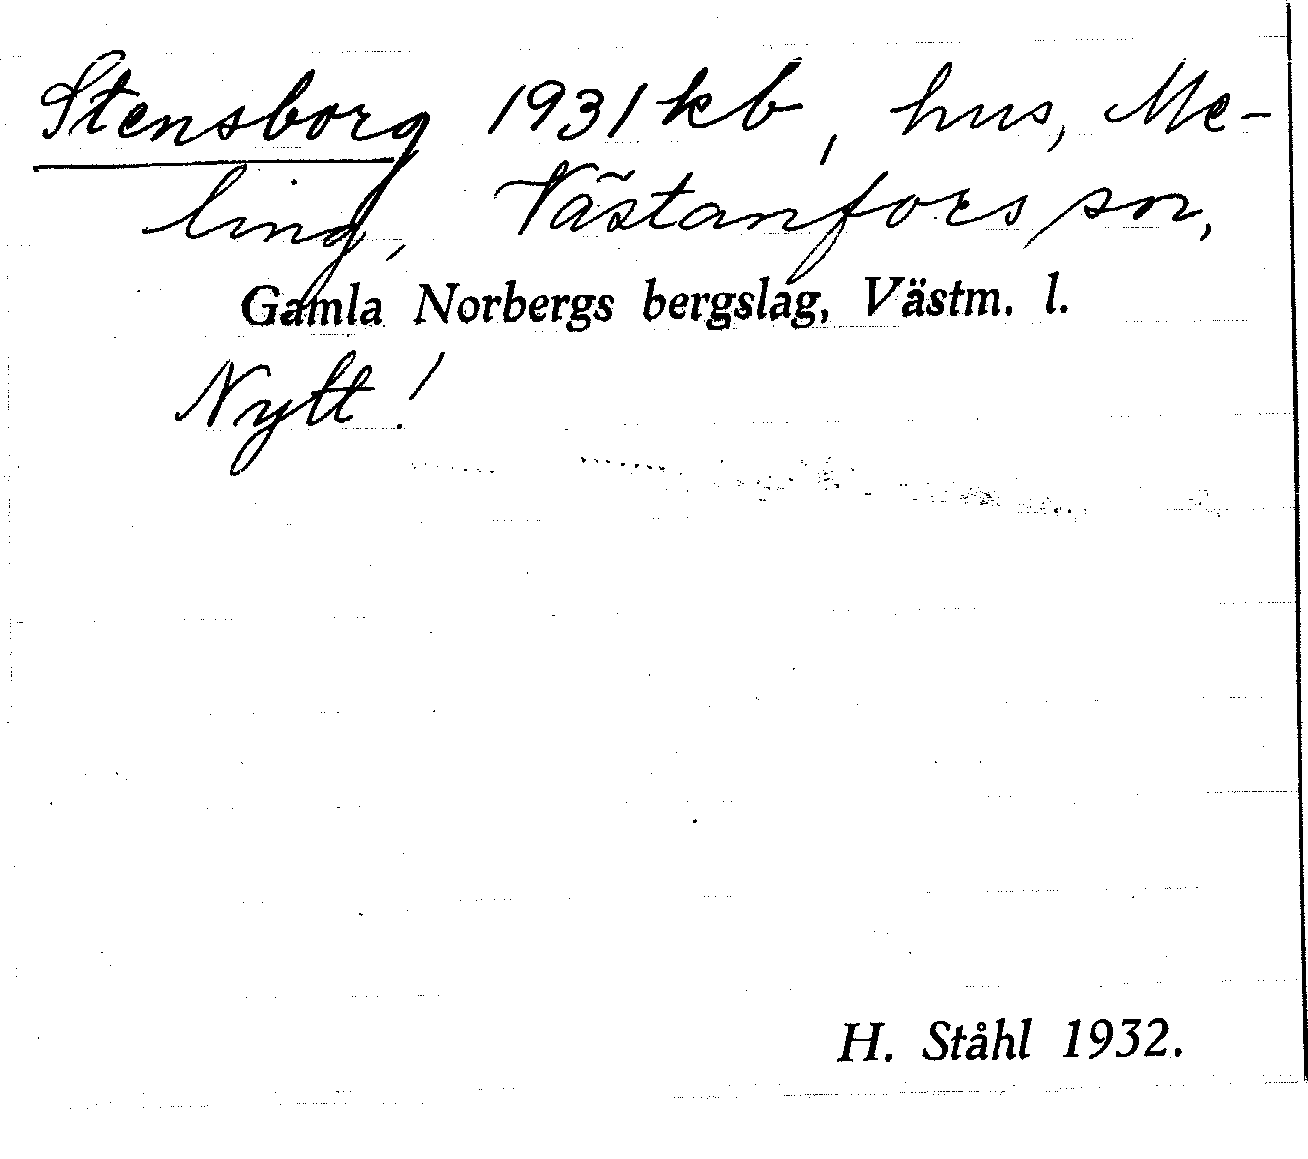 Stensborg 1931 kb, hus, Me-
ling, Västanfors sn,
Gamla Norbergs bergslag, Västm. l.
Nytt!
H. Ståhl 1932.